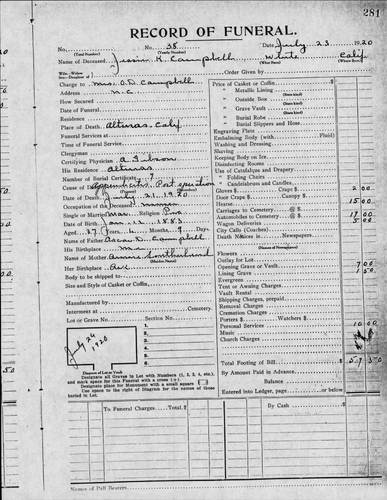 281
RECORD OF FUNERAL.
No. No. 38 Date July 23 1920
(Total Number) (Yearly Number)
Name of Deceased Jessie K. Campbell White Calif
(What Race) (Where Born)
Charge to Mrs. O.D. Campbell
Address N.C.
How Secured
Date of Funeral
Residence
Place of Death Alturas, Calif
Funeral Services at
Time of Funeral Service
Clergyman
Certifying Physician A. Gibson
His Residence Alturas
Number of Burial Certificate 7
Cause of Death Appendicitis Post operation
Date of Death July 21, 1920
Occupation of the Deceased
Single or Married Religion
Date of Birth 1883
Aged 37 Years 4 Months 9 Days
Name of Father Oscar D. Campbell
His Birthplace
Name of Mother Annie
(Maiden Name)
Her Birthplace
Body to be shipped to
Size and Style of Casket or Coffin
Manufactured by
Interment at Cemetery
Lot or Grave No. Section No.
July 24
1920
1.
2.
3.
4.
5.
6.
Diagram of Lot or Vault
Designate all Graves in Lot with Numbers (1, 2, 3, 4, etc.),
and mark space for this Funeral with a cross (+).
Designate place for Monument with a small square
Use space to the right of Diagram for the names of those
buried in Lot.
Order Given by
Price of Casket or Coffin $
" Metallic Lining
(State kind)
" Outside Box
(State kind)
" Grave Vault
(State kind)
" Burial Robe
(State kind)
" Burial Slippers and Hose
Engraving Plate
Embalming Body (with Fluid)
Washing and Dressing
Shaving
Keeping Body on Ice
Disinfecting Rooms
Use of Catafalque and Drapery
" Folding Chairs
" Candelabrum and Candles
Gloves $ Crape $ 2 00
Door Crape Candy $
Hearse 15 00
Carriages to Cemetery @ $
Automobiles to Cemetery @ $ 17 00
Wagon Deliveries 5 00
City Calls (Coaches)
Death Notices in Newspapers
(Names of Newspapers)
Flowers
Outlay for Lot
Opening Grave or Vault 7 00
Lining Grave 1 50
Evergreen
Tent or Awning Charges
Vault Rental
Shipping Charges, prepaid
Removal Charges
Cremation Charges
Porters $ Watchers $
Personal Services 10 00
Music
Church Charges
Total Footing of Bill $ 57 50
By Amount Paid in Advance
Balance
Entered into Ledger, page or below.
To Funeral Charges Total $
By Cash $
Names of Pall Bearers